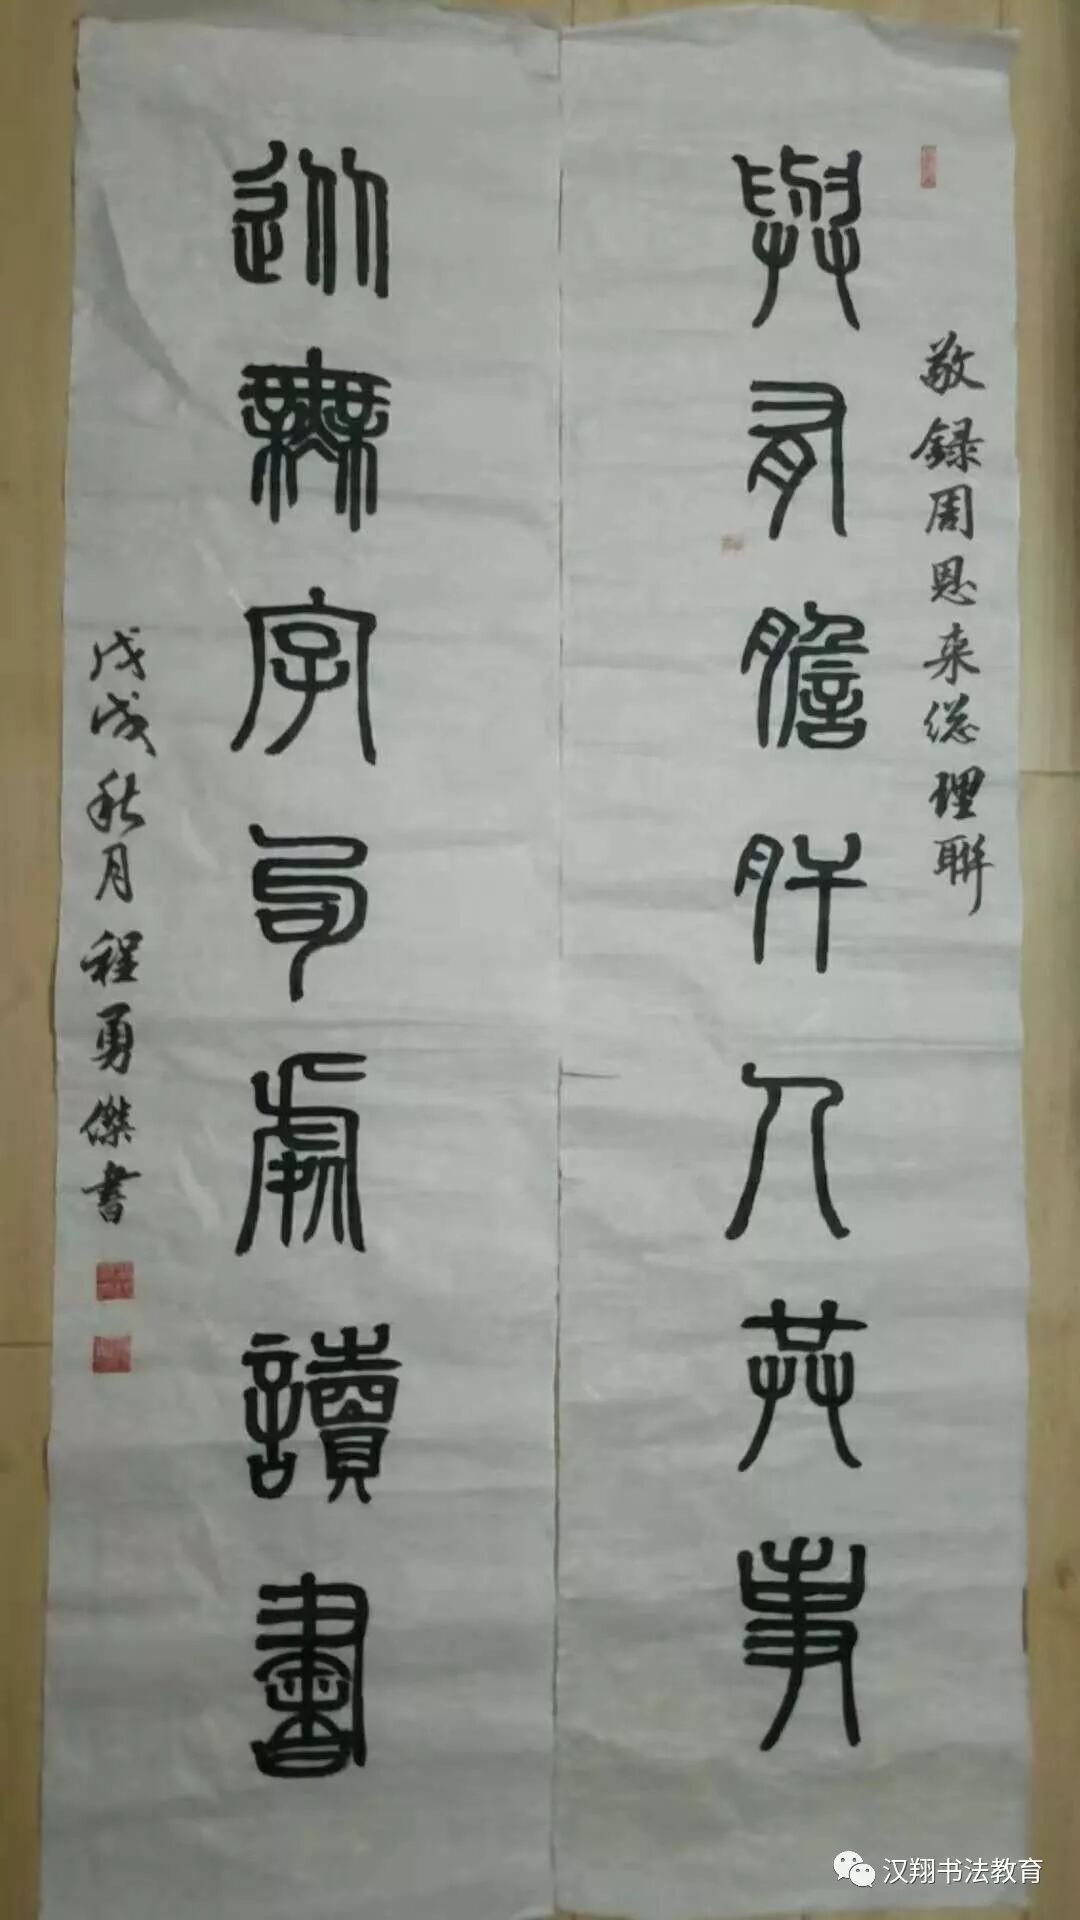 敬録周恩来総理聯
與有膽肝人共事
從無字句處讀書
戊戌秋月程勇傑書
汉翔书法教育